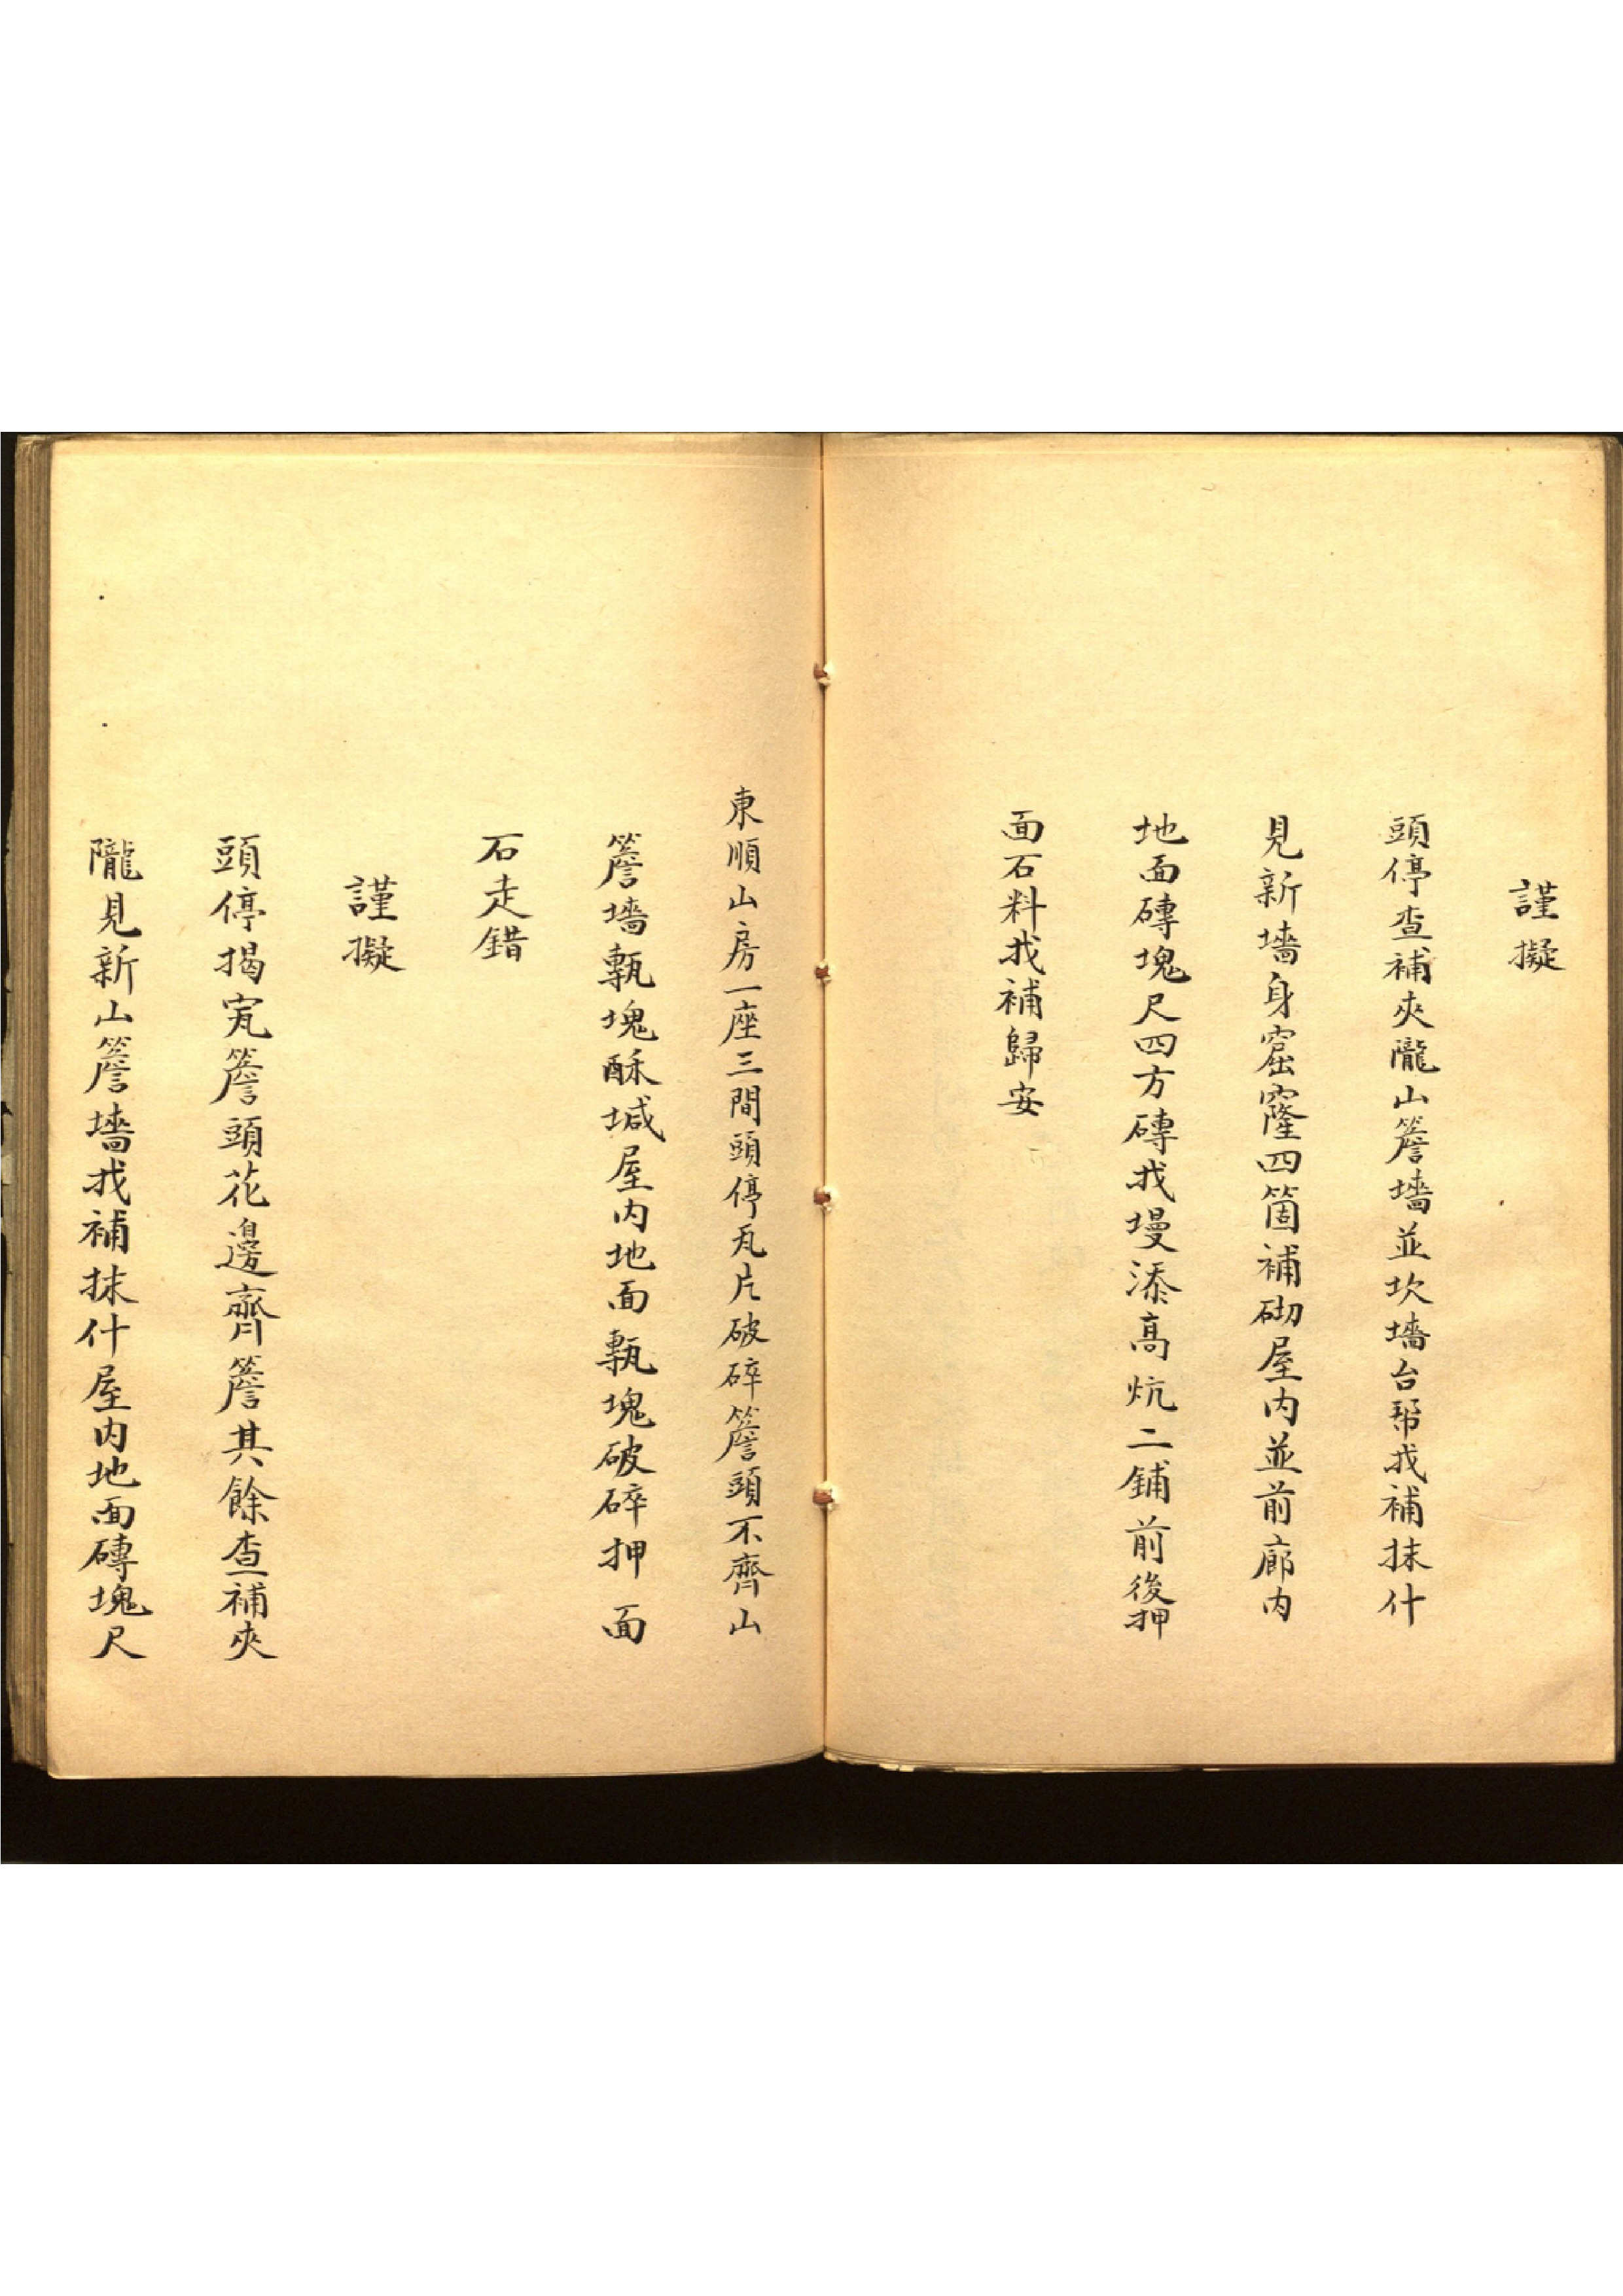 謹擬
頭停查補夾隴山簷墻並坎墻台帮找補抹什
見新墻身窟窿四箇補砌屋内並前廊内
地面磚塊尺四方磚找墁添高炕二鋪前後押
面石料找補歸安
東順山房一座三間頭停瓦片破碎簷頭不齊山
簷墻甎塊酥堿屋内地面甎塊破碎押面
石走錯
謹擬
頭停揭㼧簷頭花邊齊簷其餘查補夾
隴見新山簷墻找補抹什屋内地面磚塊尺